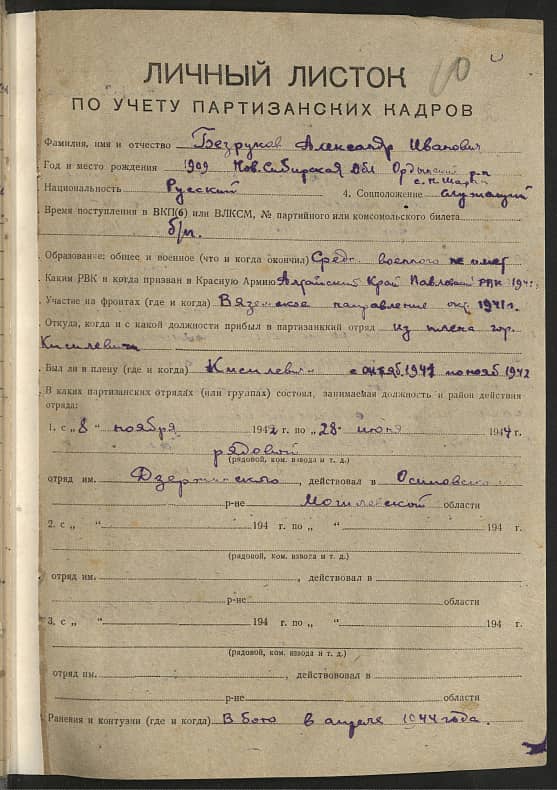 10
ЛИЧНЫЙ ЛИСТОК
ПО УЧЕТУ ПАРТИЗАНСКИХ КАДРОВ
Фамилия, имя и отчество Безруков Александр Иванович
Год и место рождения 1909 Нов. Сибирская обл Ордынский р-н
с. Н. Шарап
Национальность Русский 4. Соцположение служащий
Время поступления в ВКП(б) или ВЛКСМ, № партийного или комсомольского билета
б/п.
Образование: общее и военное (что и когда окончил) Средн. военного не имеет
Каким РВК и когда призван в Красную Армию Алтайский Край Павловский РВК 1941г.
Участие на фронтах (где и когда) Вяземское направление окт. 1941г.
Откуда, когда и с какой должности прибыл в партизанский отряд из плена гор.
Кисилевичи
Был ли в плену (где и когда) Кисилевичи с октяб. 1941 по нояб 1942
В каких партизанских отрядах (или группах) состоял, занимаемая должность и район действия
отряда:
1. с „8 “ ноября 1942 г. по „ 28 “ июня 1944 г.
рядовой
(рядовой, ком. взвода и т. д.)
отряд им. Дзержинского, действовал в Осиповском
р-не Могилевской области
2. с „ “ 194 г. по „ “ 194 г.
(рядовой, ком. взвода и т. д.)
отряд им. , действовал в
р-не области
3. с „ “ 194 г. по „ “ 194 г.
(рядовой, ком. взвода и т. д.)
отряд им. , действовал в
р-не области
Ранения и контузии (где и когда) В бою в апреле 1944 года.